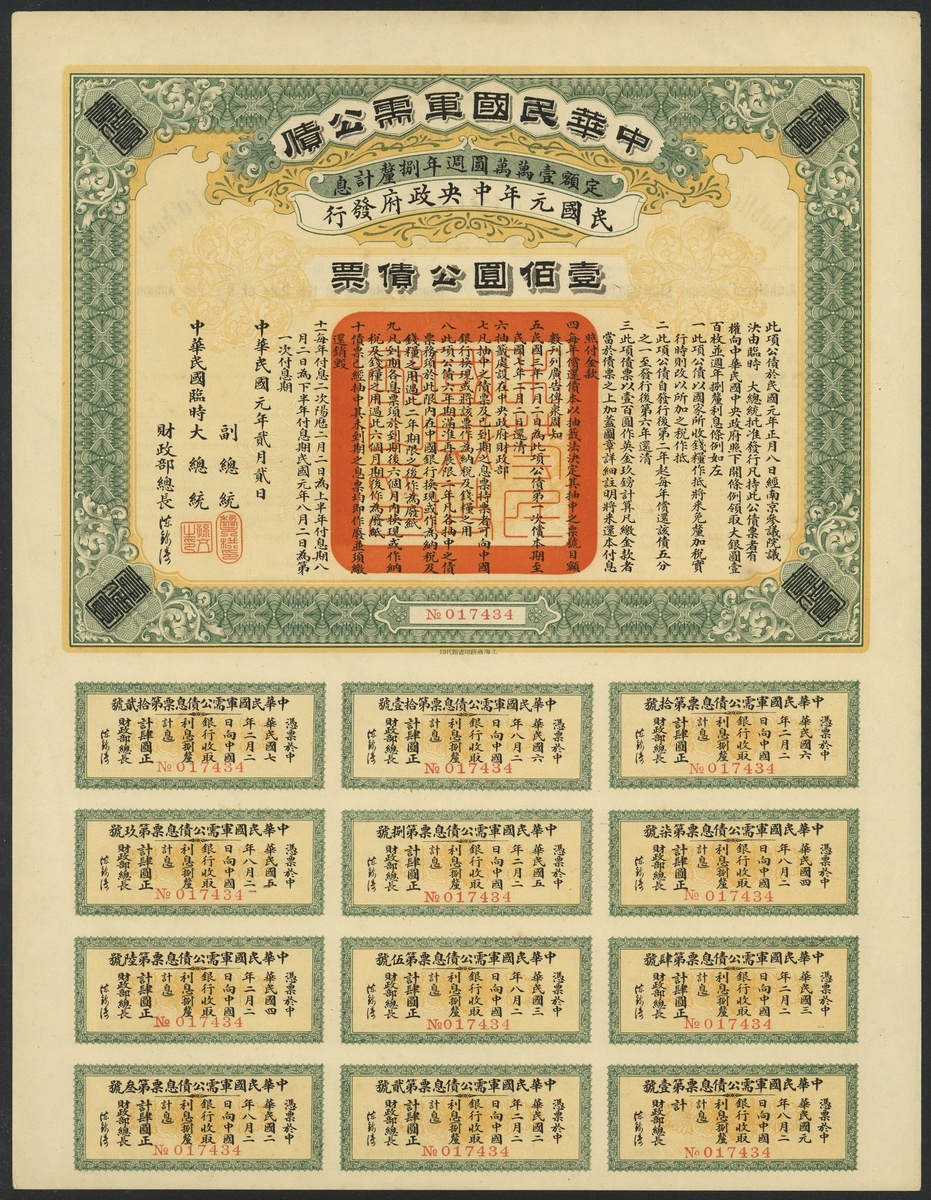 中華民國軍需公債
定額壹萬萬圓週年捌釐計息
民國元年中央政府發行
壹佰圓公債票
此項公債於民國元年正月八日經南京參議院議
決由臨時　大總統批准發行凡持此公債票者有
權向中華民國中央政府照下開條例領取大銀圓壹
百枚並週年捌釐利息條例如左
一 此項公債以國家所收錢糧作抵將來免釐加税實
行時則改以所加之税作抵
二 此項公債自發行後第二年起每年償還該債五分
之一至發行後第六年還清
三 此項債票以壹百圓作英金玖鎊計算凡繳金款者
當於債票之上加蓋圖章詳細註明將來還本付息
照付金款
四 每年償還債本以抽籤法決定其抽中之票號目額
數刋列廣告俾衆周知
五 民國三年二月二日為此項公債第一次償本期至
民國七年二月二日還清
六 抽籤處設在中央政府財政部
七 凡抽中之債票及已到期之息票持票者可向中國
銀行換現或將該票作為納税及錢糧之用
八 此項公債六年期滿准再展限二年凡各抽中之債
票務須於此限内在中國銀行換現或作為納税及
錢糧之用過此二年期限之後作為廢紙
九 凡到期各息票須於到期後六個月内換現或作納
税及錢糧之用過此六個月期後作為廢紙
十 債票已經抽中其未到期之息票均即作廢並須繳
還銷毀
十一 每年付息二次陽厯二月二日為上半年付息期八
月二日為下半年付息期民國元年八月二日為第
一次付息期
中華民國元年貳月貳日
副總統
中華民國臨時大總統
財政部總長 陳錦濤
№ 017434
上海商務印書館代印
中華民國軍需公債息票第拾號
憑票於中
華民國六
年二月二
日向中國
銀行收取
利息捌釐
計息
計肆圓正
財政部總長
陳錦濤
№ 017434
中華民國軍需公債息票第拾壹號
憑票於中
華民國六
年八月二
日向中國
銀行收取
利息捌釐
計息
計肆圓正
財政部總長
陳錦濤
№ 017434
中華民國軍需公債息票第拾貳號
憑票於中
華民國七
年二月二
日向中國
銀行收取
利息捌釐
計息
計肆圓正
財政部總長
陳錦濤
№ 017434
中華民國軍需公債息票第柒號
憑票於中
華民國四
年八月二
日向中國
銀行收取
利息捌釐
計息
計肆圓正
財政部總長
陳錦濤
№ 017434
中華民國軍需公債息票第捌號
憑票於中
華民國五
年二月二
日向中國
銀行收取
利息捌釐
計息
計肆圓正
財政部總長
陳錦濤
№ 017434
中華民國軍需公債息票第玖號
憑票於中
華民國五
年八月二
日向中國
銀行收取
利息捌釐
計息
計肆圓正
財政部總長
陳錦濤
№ 017434
中華民國軍需公債息票第肆號
憑票於中
華民國三
年二月二
日向中國
銀行收取
利息捌釐
計息
計肆圓正
財政部總長
陳錦濤
№ 017434
中華民國軍需公債息票第伍號
憑票於中
華民國三
年八月二
日向中國
銀行收取
利息捌釐
計息
計肆圓正
財政部總長
陳錦濤
№ 017434
中華民國軍需公債息票第陸號
憑票於中
華民國四
年二月二
日向中國
銀行收取
利息捌釐
計息
計肆圓正
財政部總長
陳錦濤
№ 017434
中華民國軍需公債息票第壹號
憑票於中
華民國元
年八月二
日向中國
銀行收取
利息捌釐
計
計肆圓正
財政部總長
陳錦濤
№ 017434
中華民國軍需公債息票第貳號
憑票於中
華民國二
年二月二
日向中國
銀行收取
利息捌釐
計息
計肆圓正
財政部總長
陳錦濤
№ 017434
中華民國軍需公債息票第叁號
憑票於中
華民國二
年八月二
日向中國
銀行收取
利息捌釐
計息
計肆圓正
財政部總長
陳錦濤
№ 017434